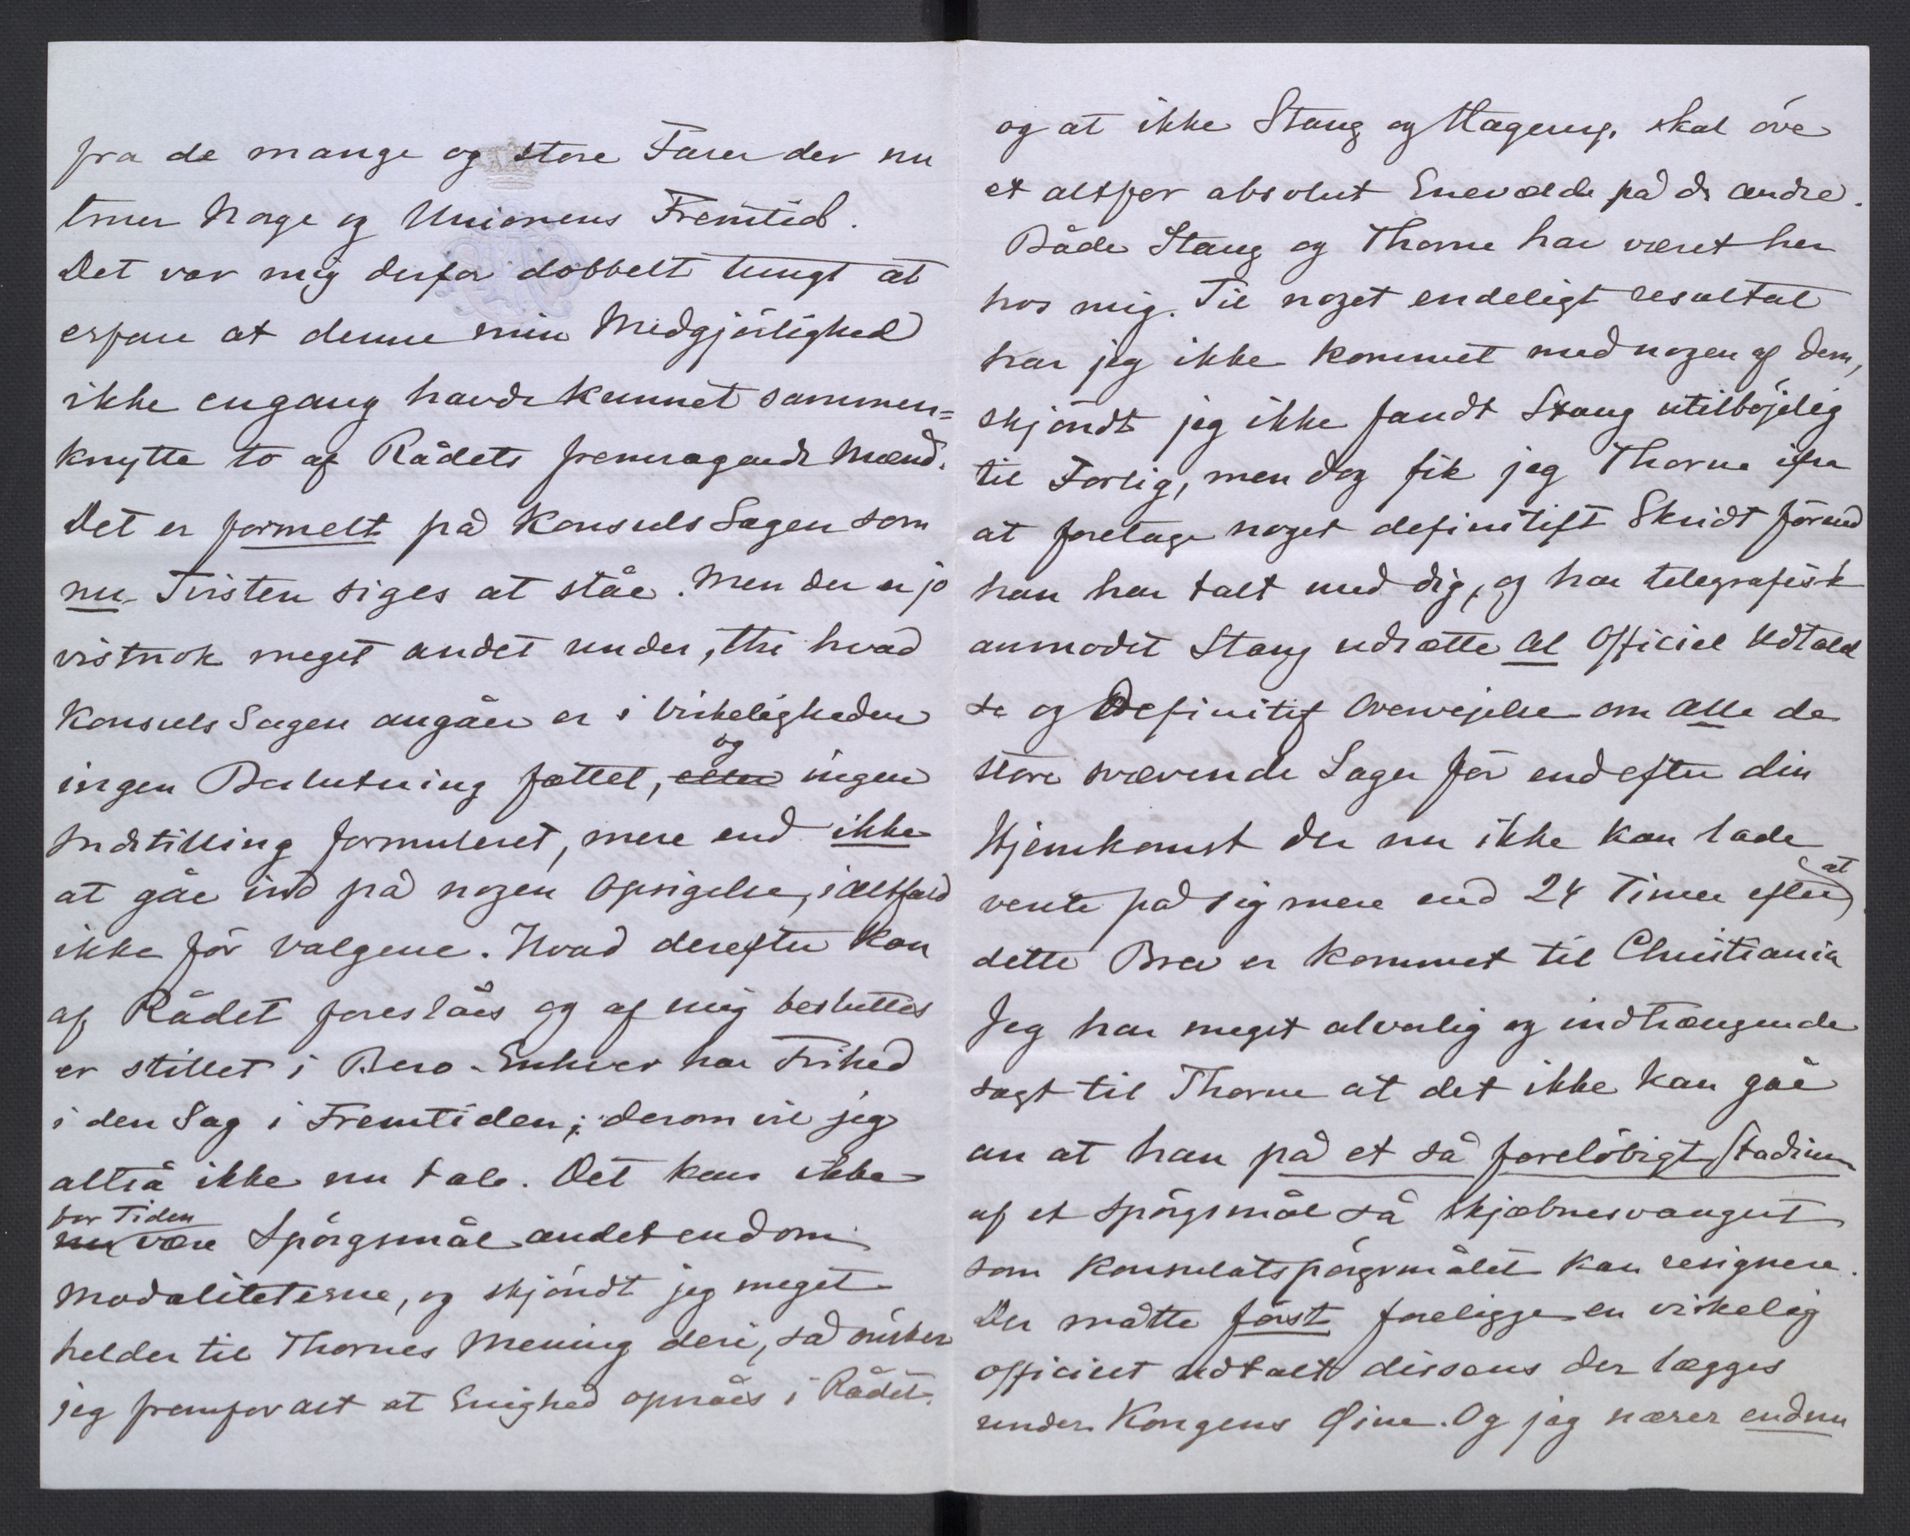 fra de mange og store Farer der nu
truer Norge og Unionens Fremtid.
Det var mig derfor dobbelt tungt at
erfare at denne min Medgjörlighed
ikke engang havde kunnet sammen=
knytte to af Rådets fremragende Mænd.
Det er formelt på Konsuls Sagen som
nu Tvisten siges at ståe. Men der er jo
vistnok meget andet under, thi hvad
Konsuls Sagen angåer er i Virkeligheden
ingen Beslutning fattet, eller og ingen
Indstilling formuleret, mere end ikke
at gåe ind på nogen Opsigelse, ialtfald
ikke för Valgene. Hvad derefter kan
af Rådet foreslåes og af mig besluttes
er stillet i Bero. Enhver har Frihed
i den Sag i Fremtiden; derom vil jeg
altså ikke nu tale. Det kan ikke
nu for Tiden være Spörgsmål andet end om
Modaliteterne, og skjöndt jeg meget
helder til Thornes Mening deri, så önsker
jeg fremfor alt at Enighed opnåes i Rådet.
og at ikke Stang og Hagerup, skal öve
et altfor absolut Enevælde på de andre.
Både Stang og Thorne har været her
hos mig. Til noget endeligt resultat
har jeg ikke kommet med nogen af dem,
skjöndt jeg ikke fandt Stang utilböjelig
til Forlig, men dog fik jeg Thorne ifra
at foretage noget definitift Skridt förend
han har talt med dig, og har telegrafisk
anmodet Stang udsætte al Officiel Udtalel
se og Definitif Overvejelse om alle de
store svævende Sager för end efter din
Hjemkomst der nu ikke kan lade
vente på sig mere end 24 Timer efter at
dette Brev er kommet til Christiania
Jeg har meget alvorlig og indtrængende
sagt til Thorne at det ikke kan gåe
an at han på et så forelöbigt Stadium
af et Spörgsmål så skjæbnesvangert
som Konsulatspörgsmålet kan resignere.
Der måtte först foreligge en virkelig
officielt udtalt dissens der lægges
under Kongens Øine. Og jeg nærer endnu